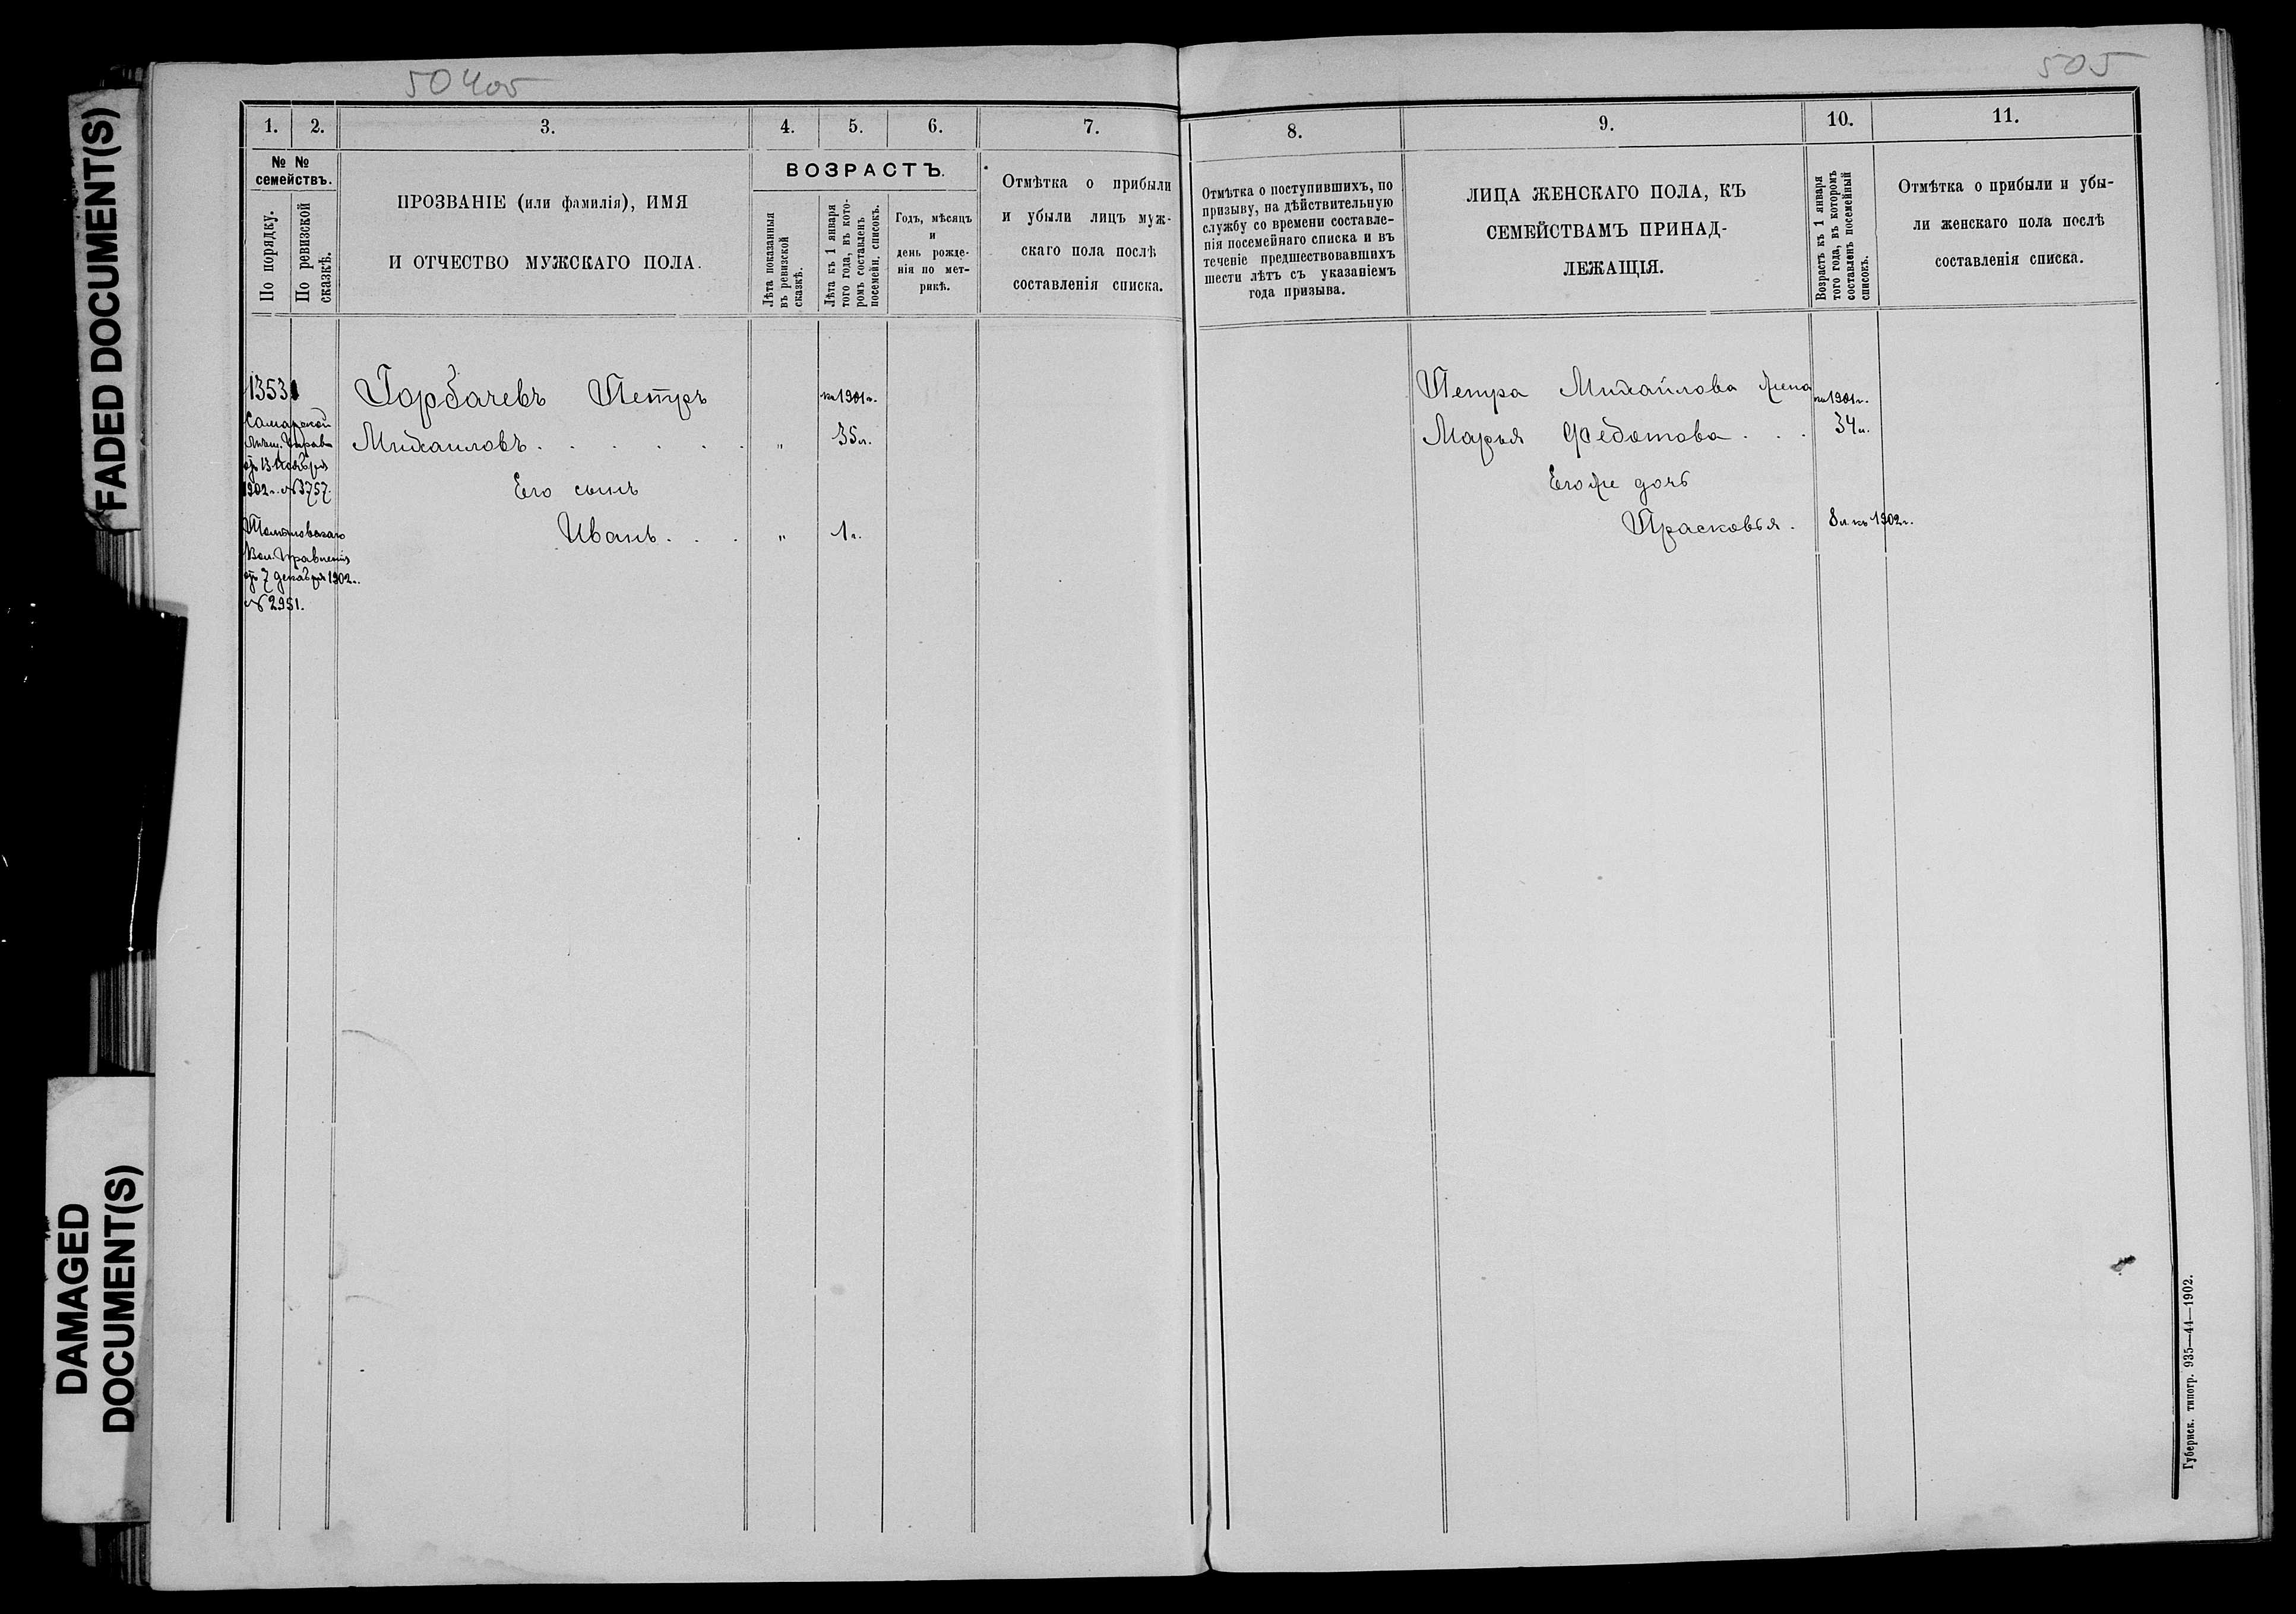 FADED DOCUMENT(S)
DAMAGED
DOCUMENT(S)
504об
1.
2.
3.
4.
5.
6.
7.
№ №
семействъ.
По порядку.
По ревизской
сказкѣ.
ПРОЗВАНІЕ (или фамилія), ИМЯ
И ОТЧЕСТВО МУЖСКАГО ПОЛА.
ВОЗРАСТЪ.
Лѣта показанныя
въ ревизской
сказкѣ.
Лѣта къ 1 января
того года, въ кото-
ромъ составленъ
посемейн. списокъ.
Годъ, мѣсяцъ
и
день рожде-
нія по мет-
рикѣ.
Отмѣтка о прибыли
и убыли лицъ муж-
скаго пола послѣ
составленія списка.
1353
Самарской
Мѣщ. Управы
отъ 13 Ноября
1902 г. № 3757.
Вол. Правленія
отъ 7 декабря 1902 г.
№ 2951.
Горбачевъ Петръ
на 1901 г.
Михаиловъ . . . . . . „ 35 л.
Его сынъ
Иванъ . . . „ 1 г.
505
8.
9.
10.
11.
Отмѣтка о поступившихъ, по
призыву, на дѣйствительную
службу со времени составле-
нія посемейнаго списка и въ
теченіе предшествовавшихъ
шести лѣтъ съ указаніемъ
года призыва.
ЛИЦА ЖЕНСКАГО ПОЛА, КЪ
СЕМЕЙСТВАМЪ ПРИНАД-
ЛЕЖАЩІЯ.
Возрастъ къ 1 января
того года, въ которомъ
составленъ посемейный
списокъ.
Отмѣтка о прибыли и убы-
ли женскаго пола послѣ
составленія списка.
Петра Михайлова жена
на 1901 г.
Марья Федотова . . . 34 л.
Его же дочь
Прасковья . 8 л. къ 1902 г.
Губернск. типогр. 935—44—1902.